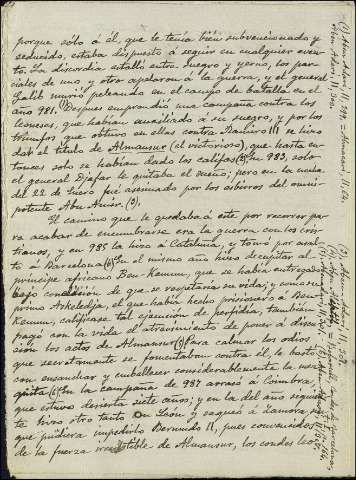 porque sólo á él, que le tenía bien subvencionado y
seducido, estaba dispuesto á seguir en cualquier even-
to. La discordia estalló entre suegro y yerno, los par-
ciales de uno y otro apelaron á la guerra, y el general
Galib murió peleando en el campo de batalla en el
año 981. (1) Despues emprendió una campaña contra los
leoneses, que habían auxiliado á su suegro, y por los
triunfos que obtuvo en ellas contra Ramiro III se hizo
dar el título de Almansur (el victorioso), que hasta en-
tonces solo se habían dado los califas (2). En 983, solo
el general Djafar le quitaba el sueño; pero en la noche
del 22 de Enero fué asesinado por los esbirros del omni-
potente Abu Amir. (3).
El camino que le quedaba á este por recorrer pa-
ra acabar de encumbrarse era la guerra con los cris-
tianos, y en 985 la hizo á Cataluña, y tomó por asal-
to á Barcelona (4). En el mismo año hizo decapitar al
príncipe africano Ben-Kenun, que se había entregado
bajo condición de que se respetaría su vida; y como su
primo Askeledja, el que había hecho prisionero á Ben
Kenun, calificase tal ejecución de perfidia, tambien
pagó con la vida el atrevimiento de poner á discu-
sión los actos de Almansur (5). Para calmar los odios
que secretamente se fomentaban contra él, le bastó
con ensanchar y embellecer considerablemente la mez-
quita (6). En la campaña de 987 arrasó á Coimbra,
que estuvo desierta siete años; y en la del año siguien-
te hizo otro tanto en León y saqueó á Zamora, sin
que pudiera impedirlo Bermudo II, pues convencidos
de la fuerza irresistible de Almansur, los condes leo-